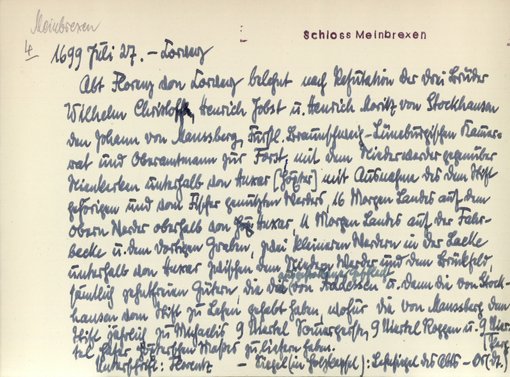 Meinbrexen
Schloss Meinbrexen
4
1699 Juli 27. – Corvey
Abt Florenz von Corvey belehnt nach Refutation der drei Brüder
Wilhelm Christoff, Henrich Jobst u. Henrich Moritz von Stockhausen
den Johann von Mansberg, Fürstl. Braunschweig-Lüneburgischen Kammer-
rat und Oberamtmann zur Först, mit dem Niederwerder gegenüber
Nienkerken unterhalb von Huxar [Höxter] mit Ausnahme des dem Stift
gehörigen und vom Fischer genutzten Werders, 16 Morgen Landes auf dem
obern Werder oberhalb von Huxar, 4 Morgen Landes auf der
becke u. dem dortigen Graben, zwei kleineren Werdern in der Lacke
unterhalb von Huxar zwischen dem Niedern Werder und dem Brückfeld,
sämtlich zehntfreien Gütern, die von Addelessen u. dann die von Stock-
hausen vom Stift zu Lehen gehabt haben, wofür die von Mansberg dem
Stift jährlich zu Michaelis 9 Viertel 9 Viertel Roggen u. 9 Vier-
tel Hafer Maßes zu liefern haben.
Unterschrift: Florentz – Siegel (in Holzkapsel): Lehnsiegel des Abts – Or.